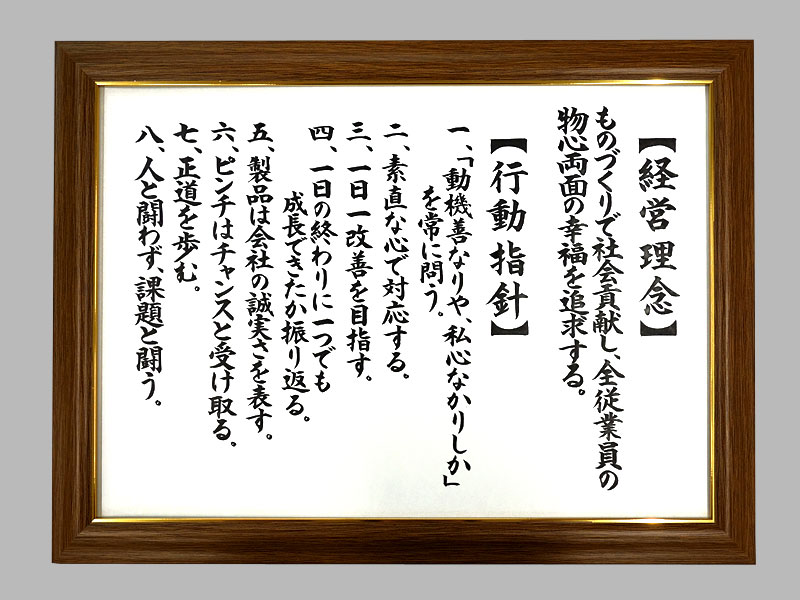 【経営理念】
ものづくりで社会貢献し、全従業員の
物心両面の幸福を追求する。
【行動指針】
一、「動機善なりや、私心なかりしか」
を常に問う。
二、素直な心で対応する。
三、一日一改善を目指す。
四、一日の終わりに一つでも
成長できたか振り返る。
五、製品は会社の誠実さを表す。
六、ピンチはチャンスと受け取る。
七、正道を歩む。
八、人と闘わず、課題と闘う。